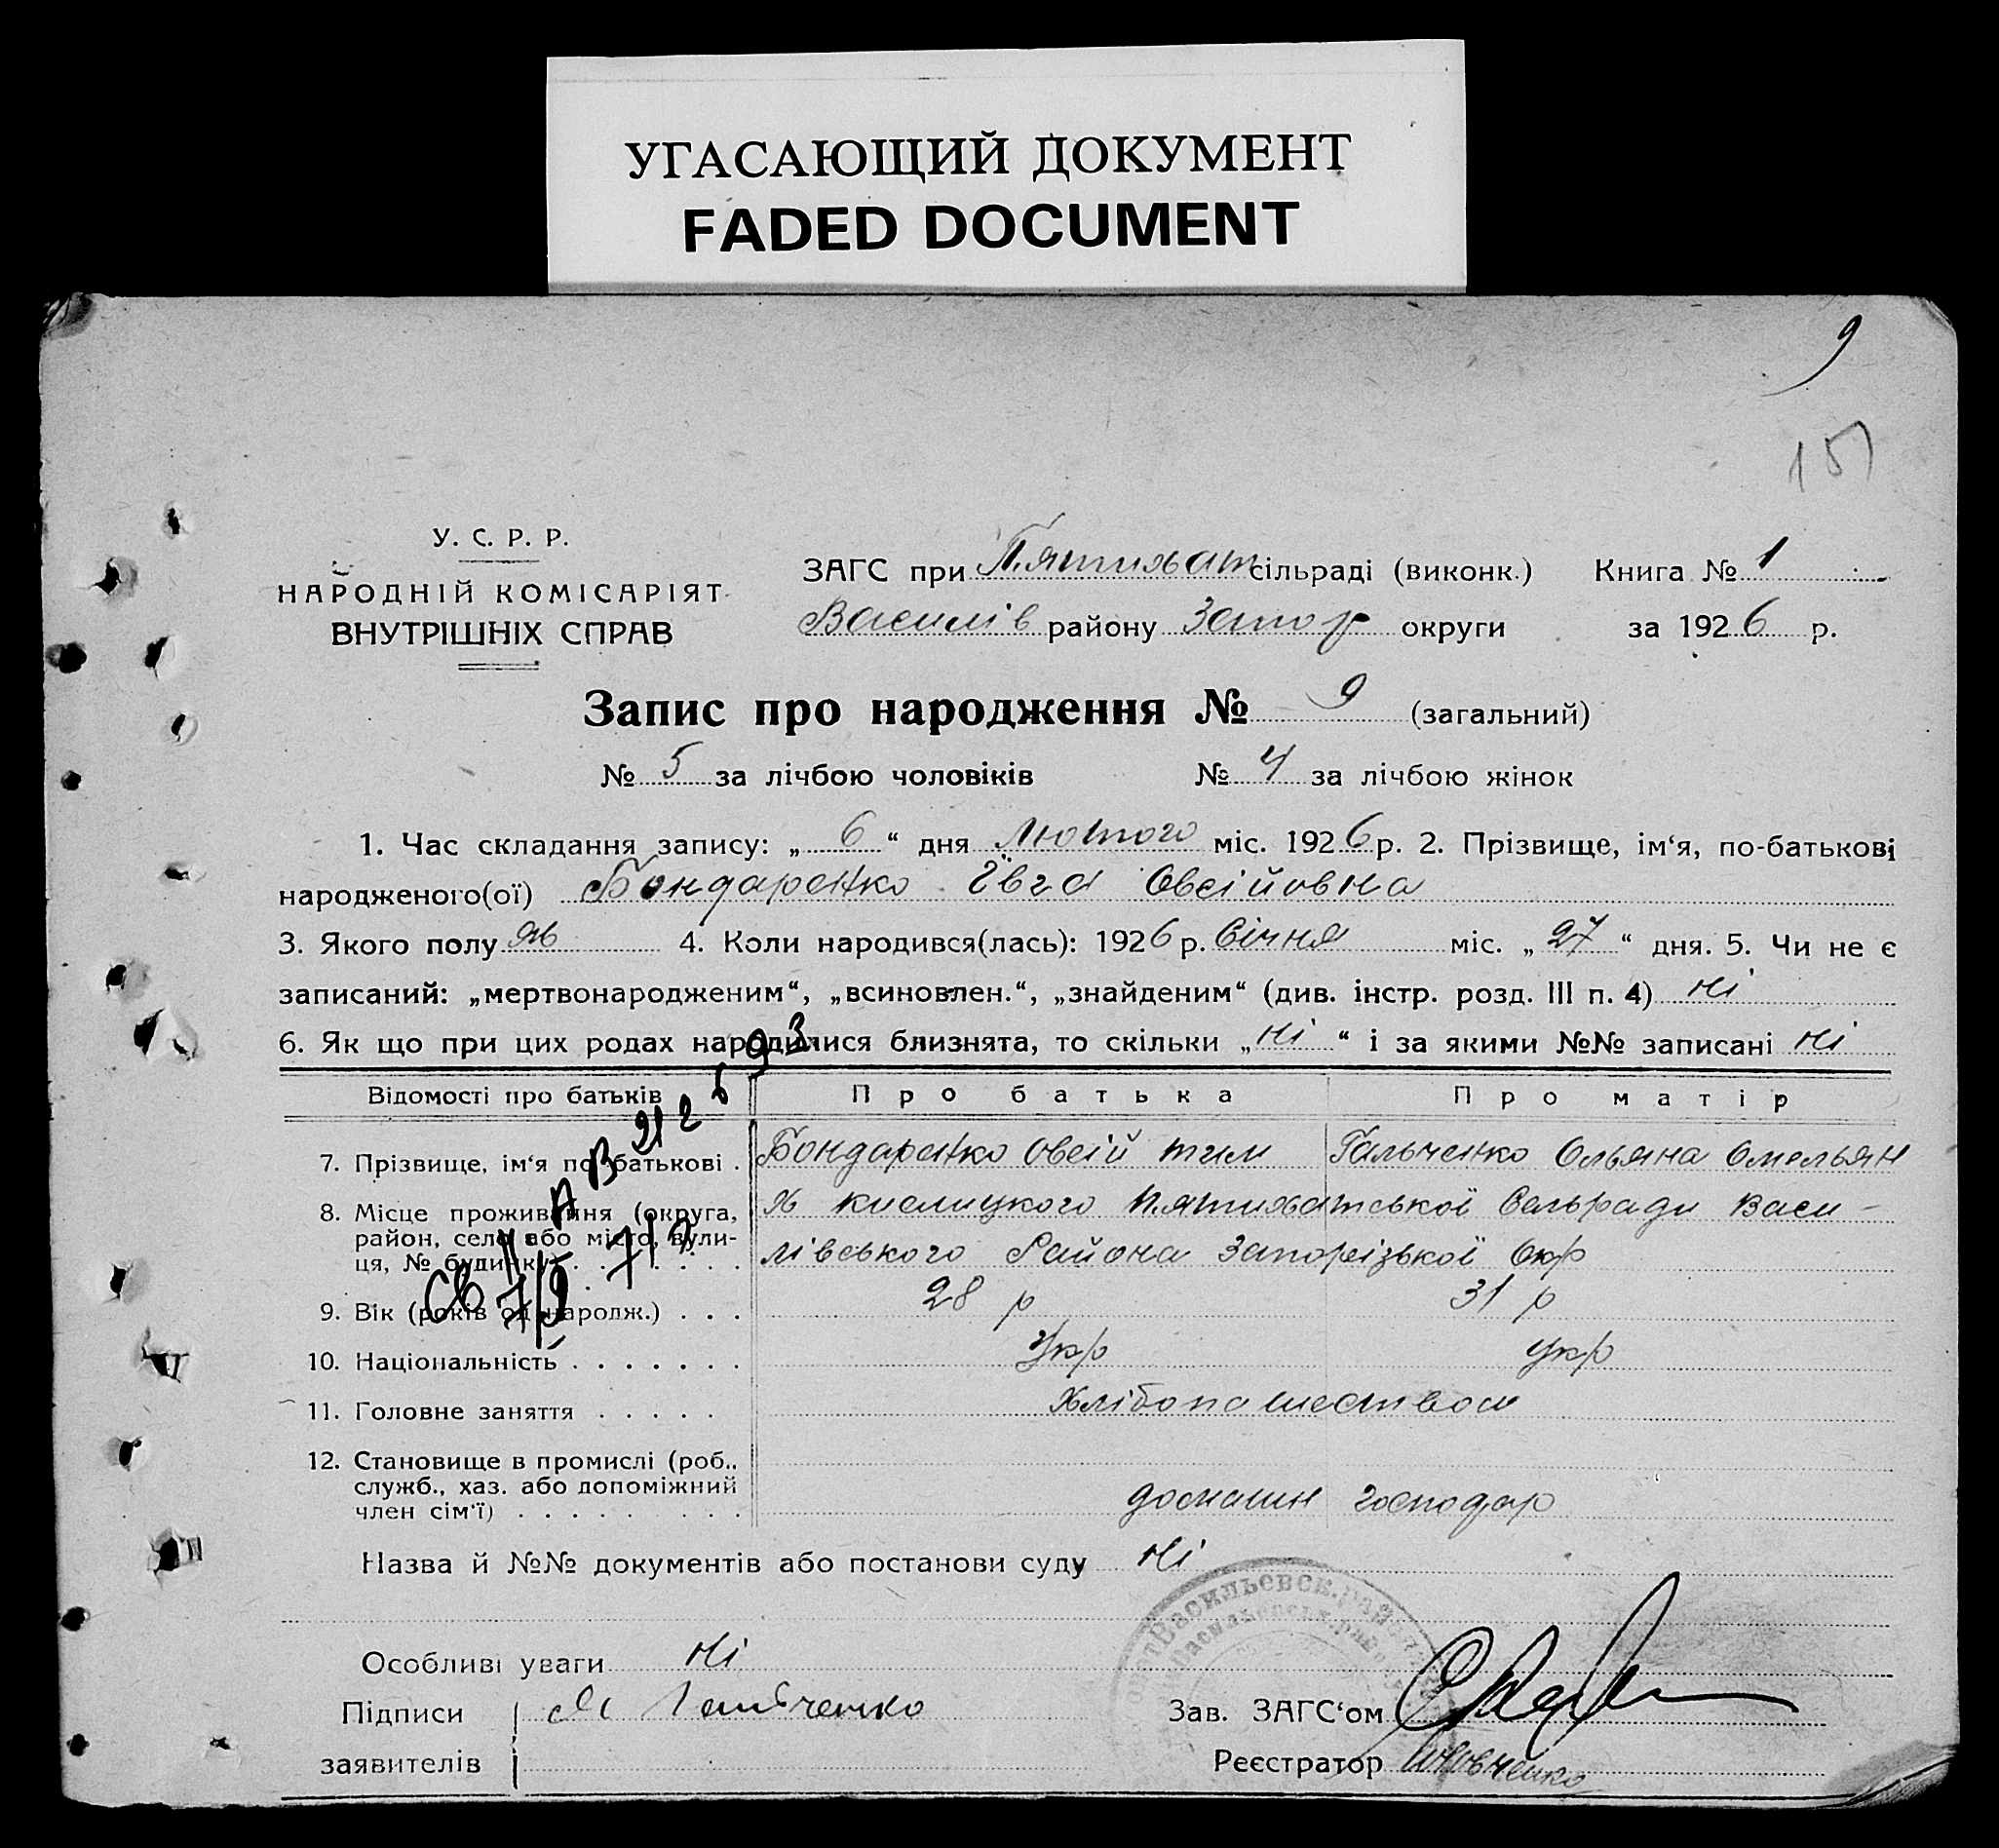 УГАСАЮЩИЙ ДОКУМЕНТ
FADED DOCUMENT
9
151
У. С. Р. Р.
НАРОДНІЙ КОМІСАРІЯТ
ВНУТРІШНІХ СПРАВ
ЗАГС при Пятихат сільраді (виконк.) Книга № 1
Василів району Запор округи за 1926 р.
Запис про народження № 9 (загальний)
№ 5 за лічбою чоловіків № 4 за лічбою жінок
1. Час складання запису: „ 6 “ дня Лютого міс. 1926 р. 2. Прізвище, ім‘я, по-батькові
народженого(ої) Бондаренко Ївга Овсійовна
3. Якого полу жі 4. Коли народився(лась): 1926 р. Січня міс. „ 27 “ дня. 5. Чи не є
записаний: „мертвонародженим“, „всиновлен.“, „знайденим“ (див. інстр. розд. III п. 4) Ні
6. Як що при цих родах народилися близнята, то скільки „ Ні “ і за якими №№ записані Ні
Відомості про батьків Про батька Про матір
7. Прізвище, ім‘я по-батькові . Бондаренко Овсій Тим Гальченко Ольяна Омельян
8. Місце проживання (округа, район, село або місто, вулиця, № будинку) х Кислицкого Пятихатської Сельради Васи-
лівського Района Запорізької Окр
9. Вік (років од народж.) . . . 28 р 31 р
10. Національність . . . . . . . Укр Укр
11. Головне заняття . . . . . Хлібопашеством
12. Становище в промислі (роб.,
служб., хаз. або допоміжний
член сім‘ї) . . . . . . . . . домашн господар
Назва й №№ документів або постанови суду Ні
Особливі уваги Ні
Підписи заявителів
Зав. ЗАГС‘ом
Реєстратор